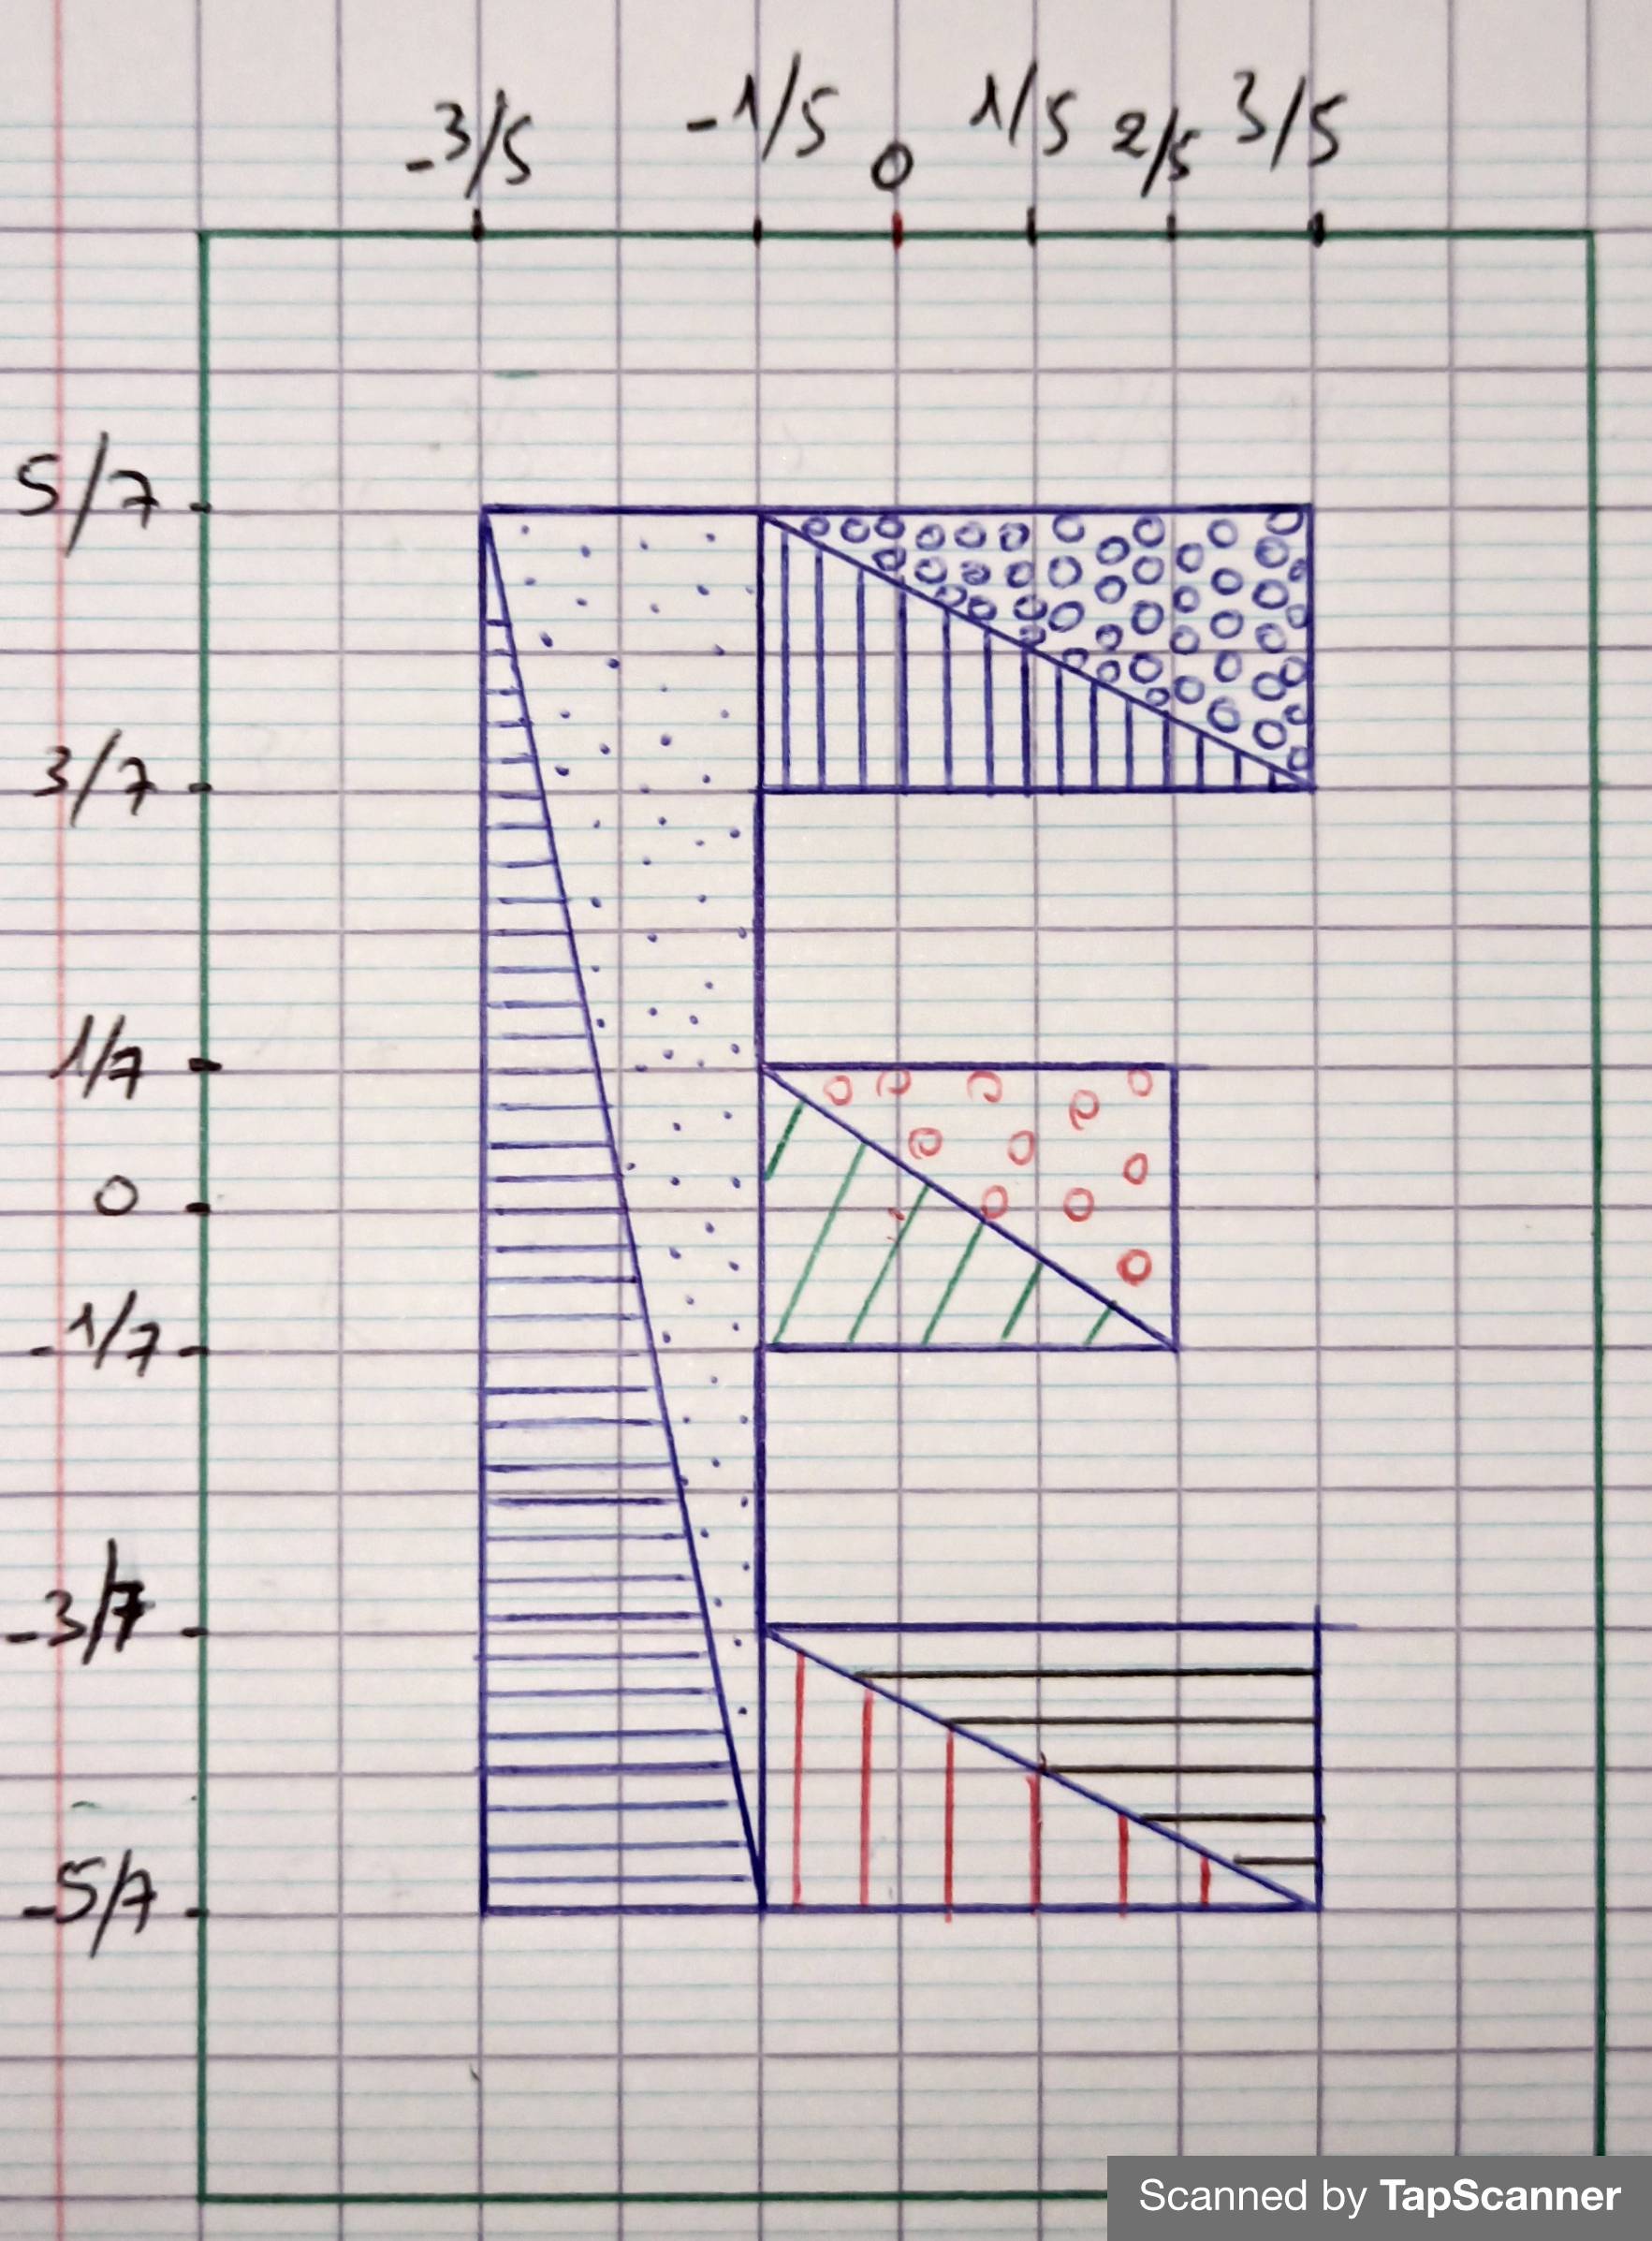 -3/5 -1/5 0 1/5 2/5 3/5
5/7
3/7
1/7
0
-1/7
-3/7
-5/7
Scanned by TapScanner